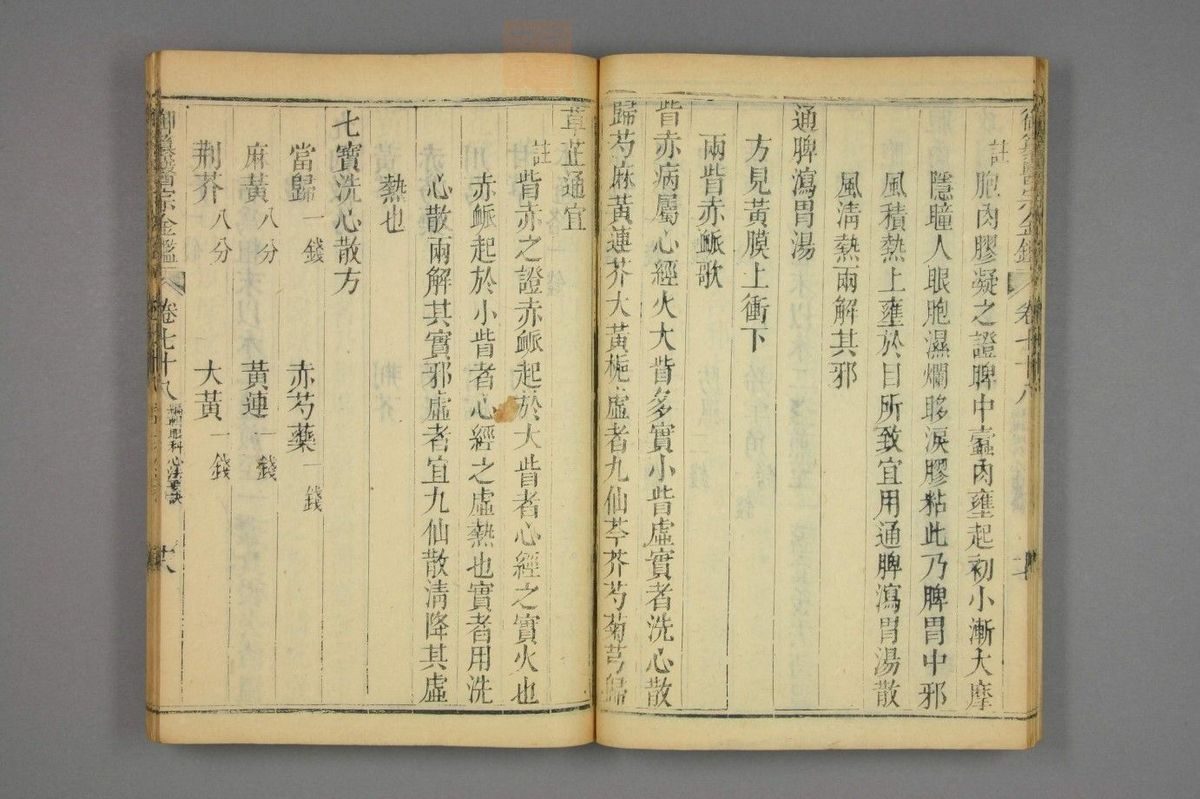 註胞肉膠凝之證脾中蠹肉壅起初小漸大摩
隱瞳人眼胞濕爛眵淚膠粘此乃脾胃中邪
風積熱上壅於目所致宜用通脾瀉胃湯散
風淸熱兩解其邪
通脾瀉胃湯
方見黃膜上衝下
兩眥赤脈歌
眥赤病屬心經火大眥多實小眥虛實者洗心散
歸芍麻黃蓮芥大黃梔虛者九仙芩芥芍菊芎歸
葦芷通宜
註眥赤之證赤脈起於大眥者心經之實火也
赤脈起於小眥者心經之虛熱也實者用洗
心散兩解其實邪虛者宜九仙散淸降其虛
熱也
七寶洗心散方
當歸一錢 赤芍藥一錢
麻黃八分 黃蓮一錢
荆芥八分 大黃一錢
御纂醫宗金鑑 卷七十八 編輯眼科心法要訣 廿八